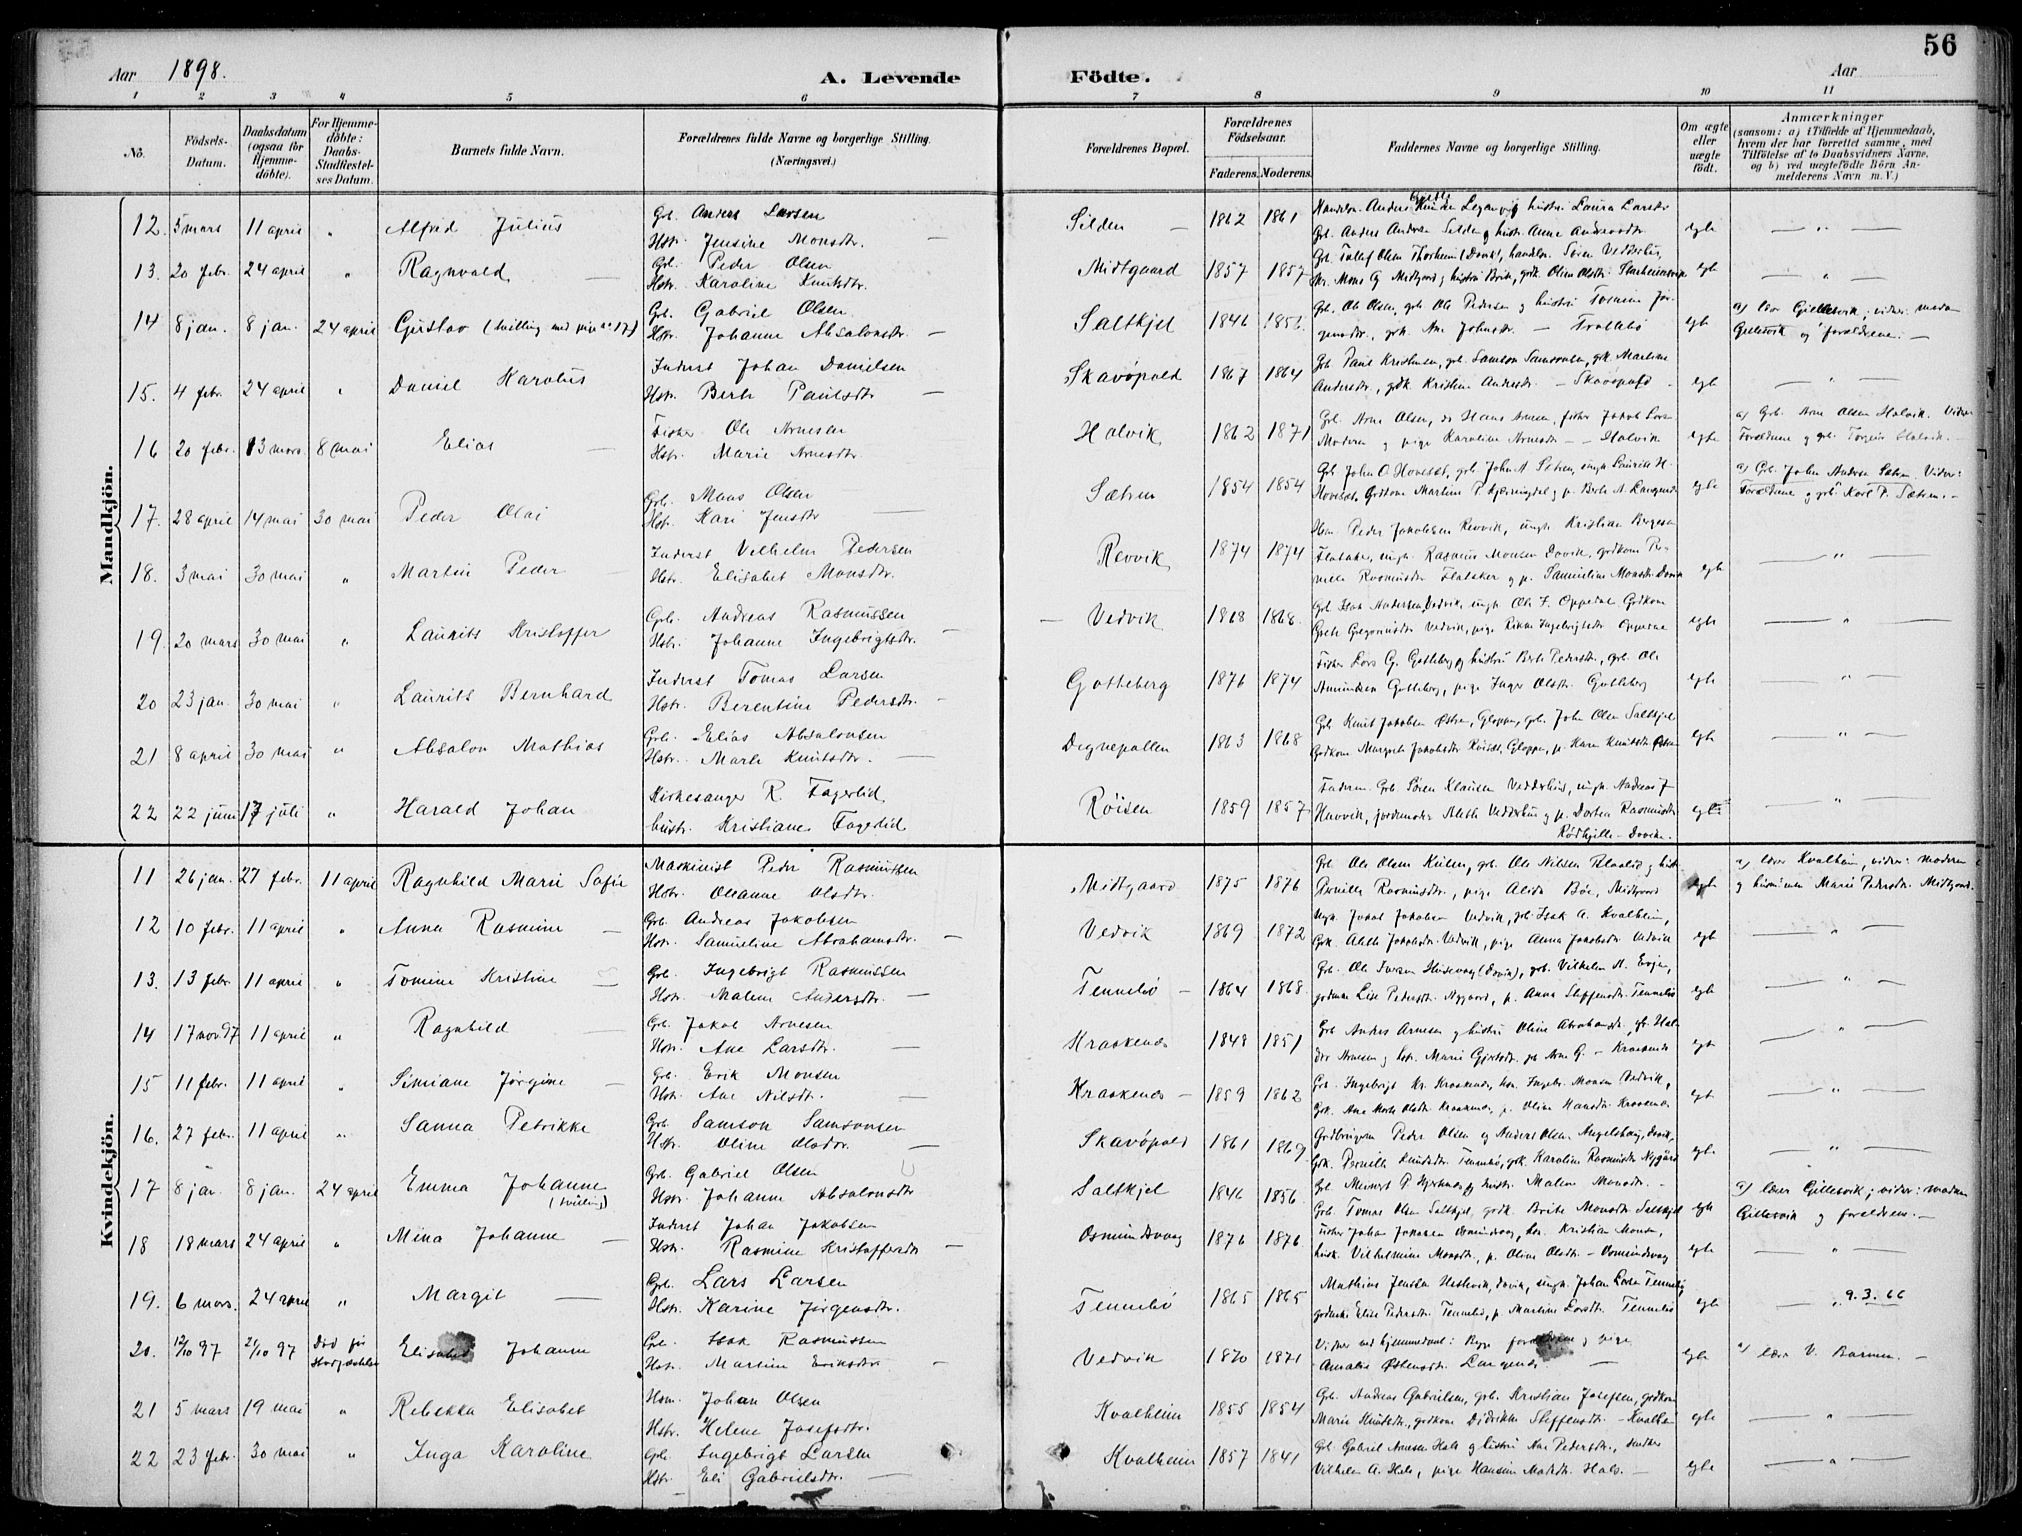 56
Aar 1898. A. Levende Födte. Aar
1 2 3 4 5 6 7 8 9 10 11
No. Födsels-Datum. Daabsdatum (ogsaa for Hjemme-döbte). For Hjemme-döbte: Daabs-Stadfæstel-ses Datum. Barnets fulde Navn. Forældrenes fulde Navne og borgerlige Stilling. (Næringsvei.) Forældrenes Bopæl. Forældrenes Födselsaar. Faderens. Moderens. Faddernes Navne og borgerlige Stilling. Om ægte eller uægte födt. Anmærkninger (saasom: a) i Tilfælde af Hjemmedaab, hvem der har forrettet samme, med Tilföielse af to Daabsvidners Navne, og b) ved uægtefödte Börn An-melderens Navn m. V.)
Mandkjön.
12. 5 mars 11 april " Alfred Julius Grb. Anders Larsen
Hstr. Jensine Monsdtr. — Silden — 1862 1861 Grb. Anders Andersen Silden og hustr. Anne Andersdtr egte — " —
13. 20 febr. 24 april " Ragnvald — Grb. Peder Olsen
Hstr. Karoline Knutsdtr. Midtgaard 1857 1857 egte — " —
14 8 jan. 8 jan. 24 april Gustav (tvilling med pige nº 17) Grb. Gabriel Olsen
Hstr. Johanne Absalonsdtr. — Saltkjel 1846 1856. Grb. Ole Olsen, grb. Ole Pedersen og hustru Tomine Jör-
gensdtr, grk. Ane Johnsdtr. — Trollebö egte a) lærer Gillesvik; vidner: madam
Gillesvik og forældrene. —
15. 4 febr. 24 april " Daniel Karolus Inderst Johan Danielsen
Hstr. Berte Paulsdtr — Skavöpold 1867 1864 Grb Paul Kristensen, grb. Samson Samsonsen, grk Martine
Andersdtr., gdk. Kristine Andersdtr — Skavöpold egte — " —
16 20 febr. 13 mars. 8 mai Elias — Fisker Ole Arnesen
Hstr. Marie Arnesdtr. Halvik 1862 1871 Grb. Arne Olsen, Hans Arnesen, fisker Jakob Lars
Moderen og pige Karoline Arnesdtr — Halvik egte a) Grb. Arne Olsen Halvik. Vidner
Forældrene og grb. Torgeir Halvik. —
17. 28 april 14 mai 30 mai Peder Olai Grb. Mons Olsen —
Hstr. Kari Jensdtr — Sætren 1854 1854 Grb John O. Hovesæt, grb. John A. Sætren, ungk Laurits H.
Hovesæt, Grdkone Martine P. Kjerringdal og p. Berte A. Langenes egte a) Grb. John Anders. Sætren. Vidner:
Forældrene og grb. Karl P. Sætren. —
18. 3 mai 30 mai " Martin Peder — Inderst Vilhelm Pedersen
Hstr. Elisabet Monsdtr. Revvik 1874 1874 Hsm Peder Jakobsen Revvik, ungk Kristian Bergesen
Flataker, ungk. Rasmus Monsen Dovik, grdkone Per-
nille Rasmusdtr Flataker og p. Samueline Monsdtr Dovik egte — " —
19. 20 mars 30 mai " Laurits Kristoffer Grb. Andreas Rasmussen
Hstr. Johanne Ingebrigtsdtr. — — Vedvik 1868 1868. Grb Isak Andersen Vedvik, ungk Ole J. Oppedal Grdkone
Grete Gregoriusdtr Vedvik, pige Rikke Ingebrigtsdtr Oppedal egte — " —
20 23 jan. 30 mai " Laurits Bernhard Inderst Tomas Larsen
Hstr. Berentine Pedersdtr. — Gotteberg 1876 1874 Fisker Lars G. Gotteberg og hustru Berte Pedersdtr., grb. Ole
Amundsen Gotteberg, pige Inger Olsdtr. Gotteberg egte — " —
21 8 april 30 mai " Absalon Mathias Grb. Elias Absalonsen —
Hstr. Marte Knutsdtr. — Degnepollen 1863 1868 Grb Knut Jakobsen Östren, Gloppen, grb. John Olsen Saltkjel
Grdkone Margrete Jakobsdtr Röisæt, Gloppen, p. Karen Knutsdtr Östren egte — " —
22 22 juni 17 juli " Harald Johan Kirkesanger R. Fagerlid
hustr. Kristiane Fagerlid Röisen 1859 1857 Faderen Grb Sören Klausen Vedderhus, ungk. Andreas J
Havvik, jordemoder Alette Vedderhus og p. Dortea Rasmusdtr
Rödkjille-Dovik. egte — " —
Kvindekjön.
11 26 jan. 27 febr. 11 april Ragnhild Marie Sofie Maskinist Peder Rasmussen
Hstr. Oleanne Olsdtr. Midtgaard 1875 1876 Grb. Ole Olsen Kulen, grb. Ole Nilsen og hustr
Pernille Rasmusdtr, pige Alida Böe, Midtgaard egte a) lærer Kvalheim, vidner: moderen
og husmannen Marie Pedersdtr Midtgaard.
12 10 febr. 11 april " Anna Rasmine — Grb. Andreas Jakobsen
Hstr. Samueline Abrahamsdtr. — Vedvik 1869 1872 Ungk. Jakob Jakobsen Vedvik, grb. Isak A. Kvalheim,
Grk. Alette Jakobsdtr. Vedvik, pige Anna Jakobsdtr Vedvik egte — " —
13. 13 febr. 11 april " Tomine Kristine — Grb. Ingebrigt Rasmussen
Hstr. Malene Andersdtr. — Tennebö — 1864 1868. Grb. Ole Iversen Husevaag (Dovik), grb. Vilhelm A. Evjen,
grdkone Lise Pedersdtr. Nygaard, p. Anna Steffensdtr. Tennebö egte — " —
14 17 nov 97 11 april " Ragnhild — Grb. Jakob Arnesen
Hstr. Ane Larsdtr. — Kraakenes 1848 1851 Grb Anders Arnesen og hustru Oline Abrahamsdtr, grb. Hal-
dor Arnesen og hstr. Marie Gjertsdtr, grb Arne G. — Kraakenes egte — " —
15 11 febr. 11 april " Simiane Jörgine — Grb. Erik Monsen
Hstr. Ane Nilsdtr. — Kraakenes — 1859 1862 Grb. Ingebrigt Kr. Kraakenes, hsm. Ingebr. Monsen Vedvik,
Grk. Ane Marte Olsdtr Kraakenes, p. Oline Hansdtr. Kraakenes egte — " —
16. 27 febr. 11 april " Sanna Petrikke Grb. Samson Samsonsen
Hstr Oline Olsdtr. — Skavöpold 1861 1869. Grdbrugerne Peder Olsen og Anders Olsen Angelshaug, Dovik,
Grk. Pernille Knutsdtr. Tennebö, grk. Karoline Rasmusdtr Nygård egte — " —
17 8 jan. 8 jan. 24 april Emma Johanne
(tvilling) Grb. Gabriel Olsen
Hstr. Johanne Absalonsdtr Saltkjel 1846 1856. Grb. Meinert P. og hustr. Malene Monsdtr. —
Grb. Tomas Olsen Saltkjel, grdk. Brite Monsdtr Saltkjel egte a) lærer Gillesvik; vidner: madam
Gillesvik og forældrene. —
18 18 mars 24 april " Mina Johanne — Inderst Johan Jakobsen
Hstr. Rasmine Kristoffersdtr — Osmundsvaag 1876 1876 Fisker Johan Jakobsen Osmundsvaag, hsm. Kristian Monsen,
husk. Vilhelmine Monsdtr, p. Oline Olsdtr — Osmundsvaag egte — " —
19. 6 mars. 24 april " Margit — Grb. Lars Larsen
Hstr. Karine Jörgensdtr. Tennebö 1865 1865 Mathias Jensen Hestevik, Dovik, ungk. Johan Larsen Tennebö,
grdenke Elise Pedersdtr Tennebö, p. Martine Larsdtr. Tennebö egte — " 9.3.66
20. 12/10 97 21/10 97 Död för
Stadfæstelsen Elisabet Johanne Grb. Isak Rasmussen
Hstr. Martine Eriksdtr — Vedvik 1870 1871 Vidner ved hjemmedaab: Begge forældrene og pige
Amalie Östensdtr. Langenes — egte a) lærer V. Barmen. —
21 5 mars 19 mai " Rebekka Elisabet Hsm. Johan Olsen
Hstr. Helene Josefsdtr. Kvalheim 1855 1854 Grb. Andreas Gabrielsen, grb. Kristian Josefsen, grdkone
Marie Knutsdtr., grdkone Didrikke Steffensdtr — Kvalheim egte — " —
22 23 febr. 30 mai " Inga Karoline Grb. Ingebrigt Larsen
Hstr. Eli Gabrielsdtr. — Kvalheim 1857 1841 Grb Gabriel Arnesen Hals og hustru Ane Pedersdtr.,
Vilhelm A. Hals, pige Hansine Matsdtr. Hals. — egte — " —